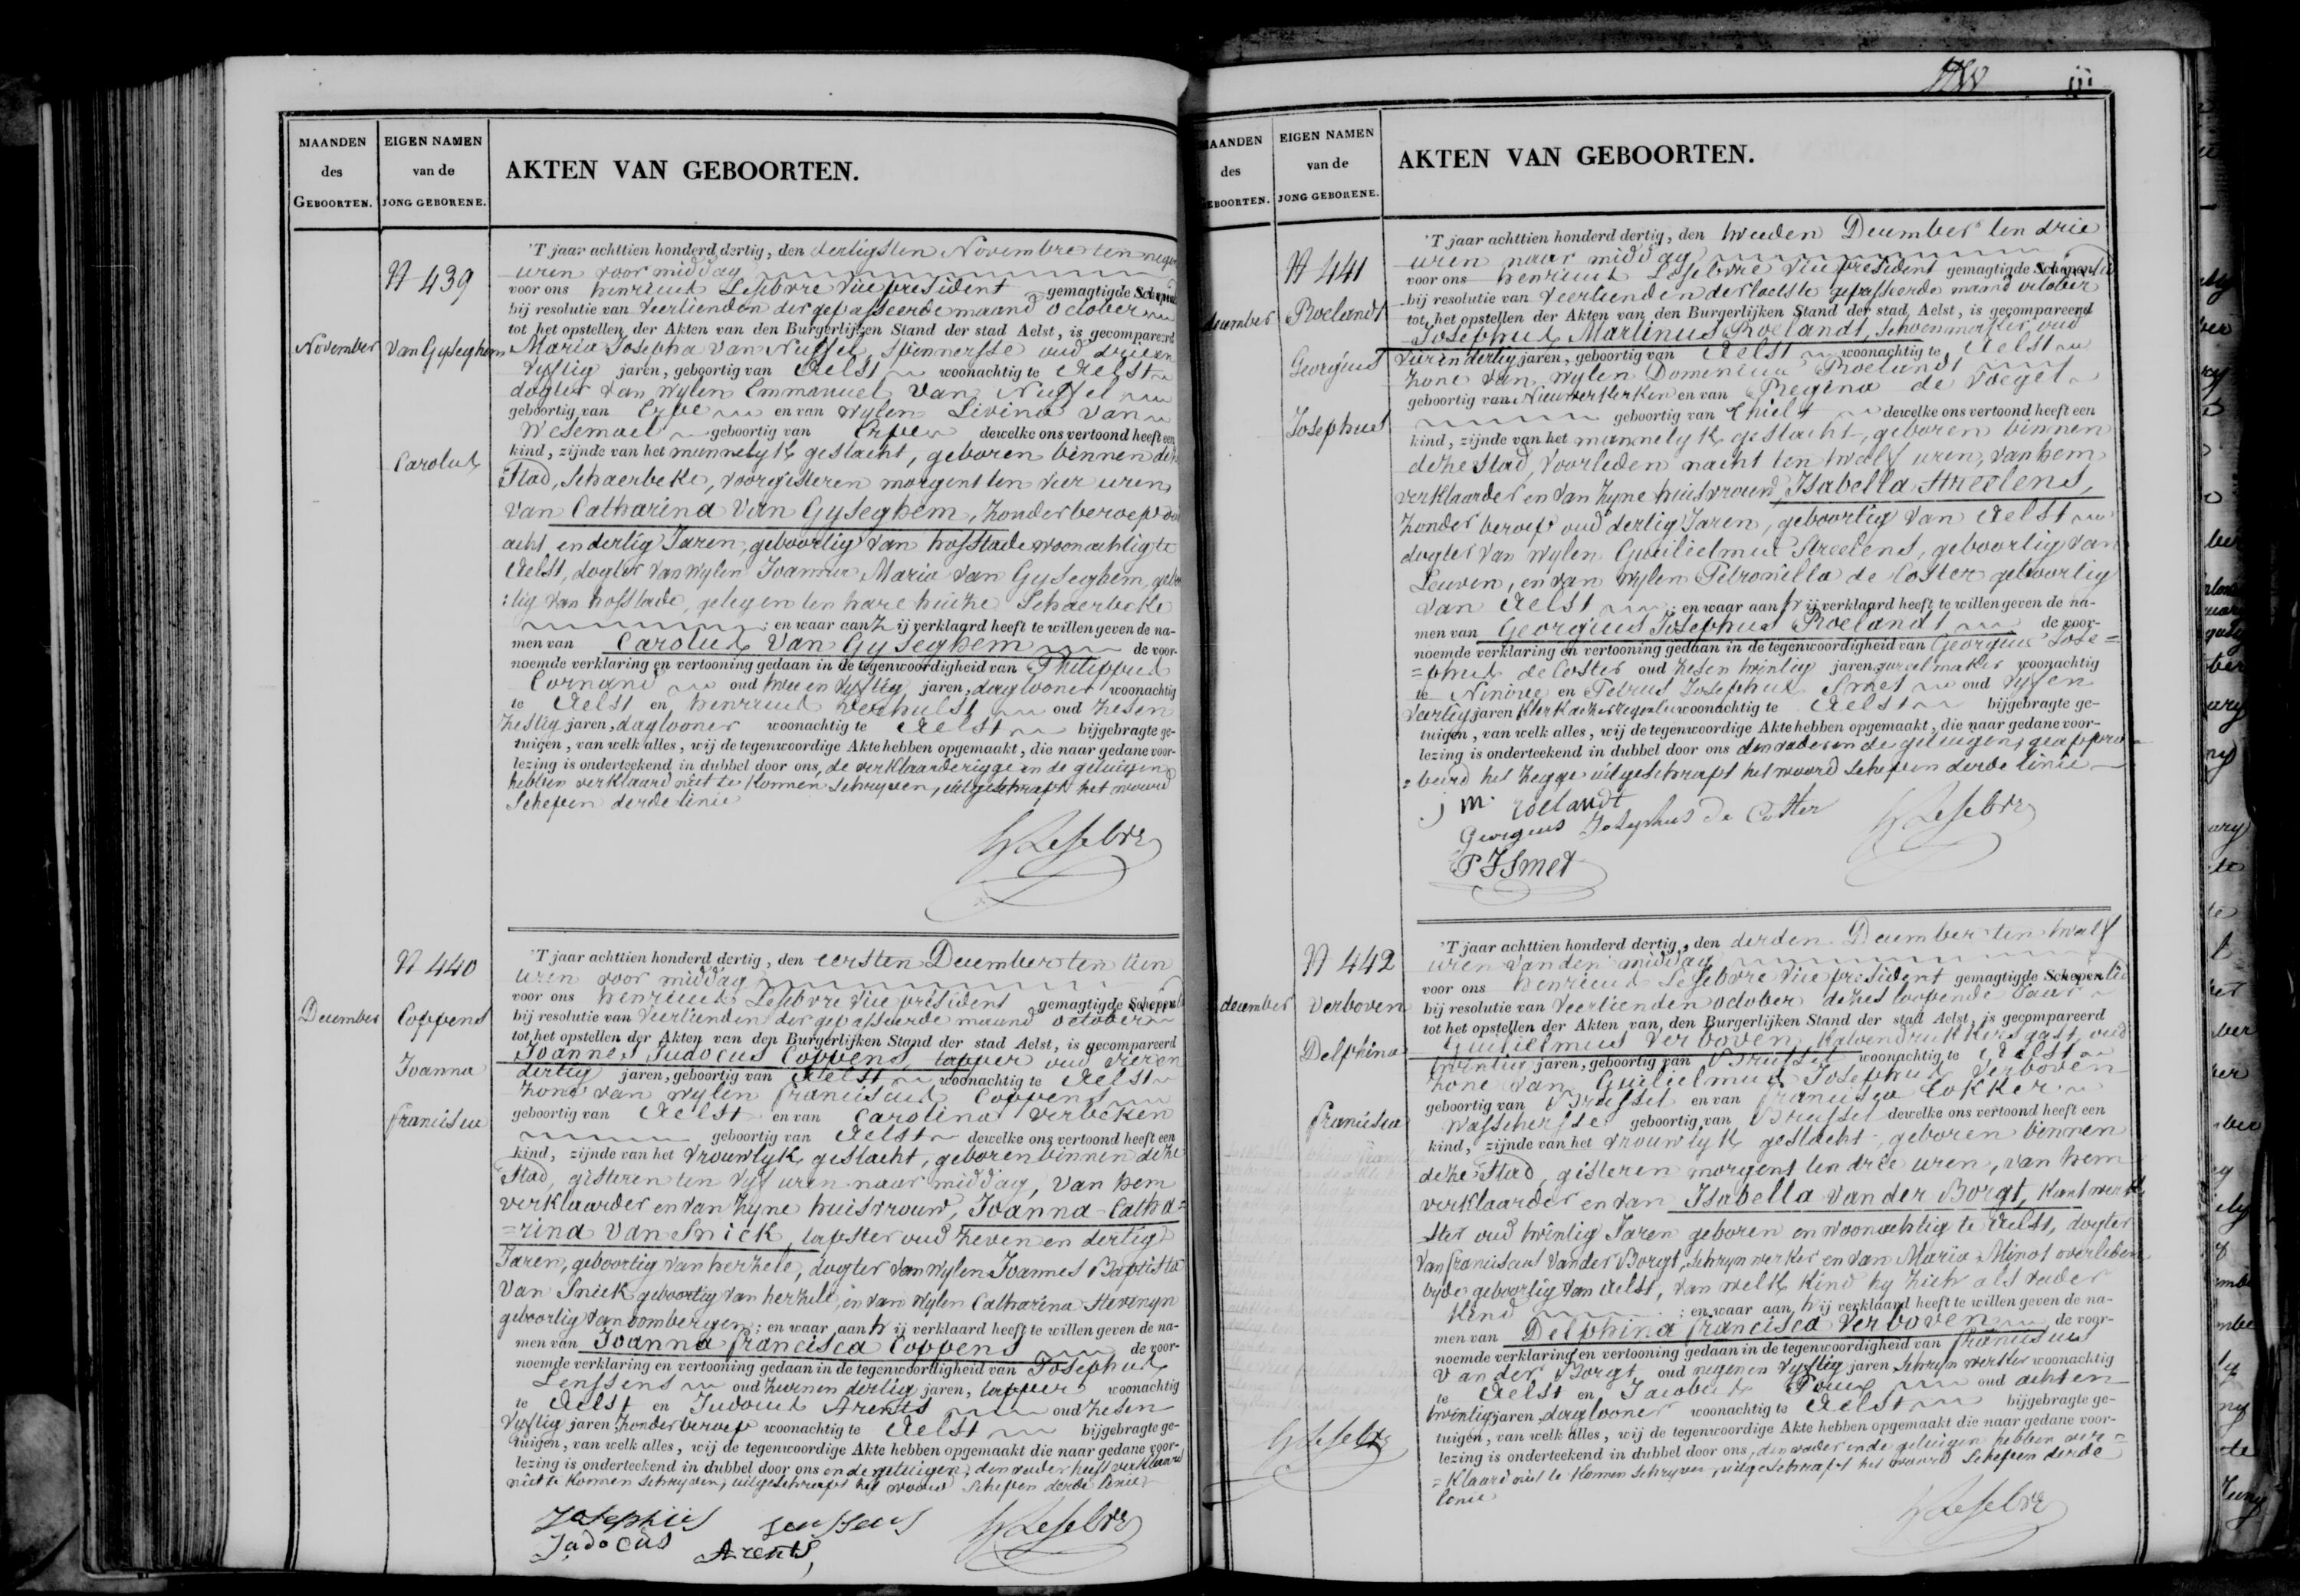 MAANDEN
des
GEBOORTEN.
EIGEN NAMEN
van de
JONG GEBORENE.
AKTEN VAN GEBOORTEN.
N 439
November
Van Gyseghem
Carolus
'T jaar achttien honderd dertig, den dertigsten Novembre ten negen
uren voor middag
voor ons henricus Lefebvre vice president gemagtigde Schepen
bij resolutie van veertienden der gepasseerde maand october
tot het opstellen der Akten van den Burgerlijken Stand der stad Aelst, is gecompareerd
Maria Josepha Van Nuffel, spinnersse oud drie en
vyftig jaren, geboortig van Aelst woonachtig te Aelst
dogter van wylen Emmanuel Van Nuffel
geboortig van Erpe en van wylen Livina Van
Wesemael geboortig van Erpe dewelke ons vertoond heeft een
kind, zijnde van het mannelyk geslacht, geboren binnen deze
Stad, Schaerbeke, voorgisteren morgent ten vier uren,
van Catharina Van Gyseghem, zonder beroep oud
acht en dertig Jaren, geboortig van hofstade woonachtig te
Aelst, dogter van wylen Joanna Maria Van Gyseghem, geboor
:tig van hofstade, gelegen ten hare huize Schaerbeke
; en waar aan zij verklaard heeft te willen geven de na-
men van Carolus Van Gyseghem de voor-
noemde verklaring en vertooning gedaan in de tegenwoordigheid van Philippus
Cornand oud twee en vyftig jaren, daglooner woonachtig
te Aelst en henricus Verhulst oud zesen
zestig jaren, daglooner woonachtig te Aelst bijgebragte ge-
tuigen, van welk alles, wij de tegenwoordige Akte hebben opgemaakt, die naar gedane voor-
lezing is onderteekend in dubbel door ons, de verklaarderigge en de getuigen
hebben verklaard niet te konnen schryven, uitgeschrapt het woord
Schepen derde linie
H Lefebvre
N 440
December
Coppens
Joanna
francisca
'T jaar achttien honderd dertig, den eersten December ten tien
uren voor middag
voor ons henricus Lefebvre vice president gemagtigde Schepen
bij resolutie van veertienden der gepasseerde maand october
tot het opstellen der Akten van den Burgerlijken Stand der stad Aelst, is gecompareerd
Joannes Judocus Coppens, tapper oud vieren
dertig jaren, geboortig van Aelst woonachtig te Aelst
zone van wylen franciscus Coppens
geboortig van Aelst en van Carolina Verbeken
geboortig van Aelst dewelke ons vertoond heeft een
kind, zijnde van het vrouwlyk geslacht, geboren binnen deze
Stad, gisteren ten vyf uren naar middag, van hem
verklaarder en van zyne huisvrouw, Joanna Catha=
=rina Van Snick, tapster oud zeven en dertig
Jaren, geboortig van herzele, dogter van wylen Joannes Baptista
Van Snick geboortig van herzele, en van wylen Catharina Stevenyn
geboortig van ombergen; en waar aan hij verklaard heeft te willen geven de na-
men van Joanna francisca Coppens de voor-
noemde verklaring en vertooning gedaan in de tegenwoordigheid van Josephus
Lenssens oud zevenen dertig jaren, tapper woonachtig
te Aelst en Judocus Arents oud zesen
vyftig jaren zonder beroep woonachtig te Aelst bijgebragte ge-
tuigen, van welk alles, wij de tegenwoordige Akte hebben opgemaakt die naar gedane voor-
lezing is onderteekend in dubbel door ons en de getuigen, den vader heeft verklaard
niet te konnen schryven, uitgeschrapt het woord Schepen derde linie
Josephus Lenssens
Judocus Arents,
H Lefebvre
MAANDEN
des
GEBOORTEN.
EIGEN NAMEN
van de
JONG GEBORENE.
AKTEN VAN GEBOORTEN.
N 441
december
Roelandt
Georgius
Josephus
'T jaar achttien honderd dertig, den tweeden December ten drie
uren naar middag
voor ons henricus Lefebvre vice president gemagtigde Schepen
bij resolutie van veertienden der laetste gepasseerde maand october
tot het opstellen der Akten van den Burgerlijken Stand der stad Aelst, is gecompareerd
Josephus Martinus Roelandt, schoenmaker, oud
vier en dertig jaren, geboortig van Aelst woonachtig te Aelst
zone van wylen Dominicus Roelandt
geboortig van Nieuwerkerken en van Regina de Vogel
geboortig van Thielt dewelke ons vertoond heeft een
kind, zijnde van het mannelyk geslacht, geboren binnen
deze Stad, voorleden nacht ten twalf uren, van hem
verklaarder en van zyne huisvrouw Isabella Streelens,
zonder beroep oud dertig Jaren, geboortig van Aelst
dogter van wylen Guilielmus Streelens, geboortig van
Leuven, en van wylen Petronilla de Coster geboortig
van Aelst ; en waar aan hij verklaard heeft te willen geven de na-
men van Georgius Josephus Roelandt de voor-
noemde verklaring en vertooning gedaan in de tegenwoordigheid van Georgius Jose=
=phus de Coster oud zesen twintig jaren, woonachtig
te Ninove en Petrus Josephus Smet oud vyfen
veertig jaren klerk dezer regentie woonachtig te Aelst bijgebragte ge-
tuigen, van welk alles, wij de tegenwoordige Akte hebben opgemaakt, die naar gedane voor-
lezing is onderteekend in dubbel door ons den vader en de getuigen, geappro
=beerd het zegge uitgeschrapt het woord schepen derde linie
j m. roelandt
Georgius Josephus De Coster
P J Smet
H Lefebvre
N 442
december
Verboven
Delphina
francisca
'T jaar achttien honderd dertig, den derden December ten twalf
uren van den middag
voor ons henricus Lefebvre vice president gemagtigde Schepen
bij resolutie van veertienden october dezes loopende Jaar
tot het opstellen der Akten van den Burgerlijken Stand der stad Aelst, is gecompareerd
Guilielmus Verboven, katoendrukkersgast, oud
twintig jaren, geboortig van Brussel woonachtig te Aelst
zone van Guilielmus Josephus Verboven
geboortig van Brussel en van francisca Cokker
wasschersse geboortig van Brussel dewelke ons vertoond heeft een
kind, zijnde van het vrouwlyk geslacht, geboren binnen
deze Stad, gisteren morgent ten drie uren, van hem
verklaarder en van Isabella van der Borgt, kantwerk
ster oud twintig Jaren geboren en woonachtig te Aelst, dogter
van franciscus Vander Borgt, schrynwerker en van Maria Minot overleden
byde geboortig van Aelst, van welk kind hy zich als vader
kend ; en waar aan hij verklaard heeft te willen geven de na-
men van Delphina francisca Verboven de voor-
noemde verklaring en vertooning gedaan in de tegenwoordigheid van franciscus
Van der Borgt oud negen en vyftig jaren schrynwerker woonachtig
te Aelst en Jacobus oud achten
twintig jaren daglooner woonachtig te Aelst bijgebragte ge-
tuigen, van welk alles, wij de tegenwoordige Akte hebben opgemaakt die naar gedane voor-
lezing is onderteekend in dubbel door ons, den vader en de getuigen hebben ver=
=klaard niet te konnen schryven, uitgeschrapt het woord Schepen derde
linie
H Lefebvre
H Lefebvre